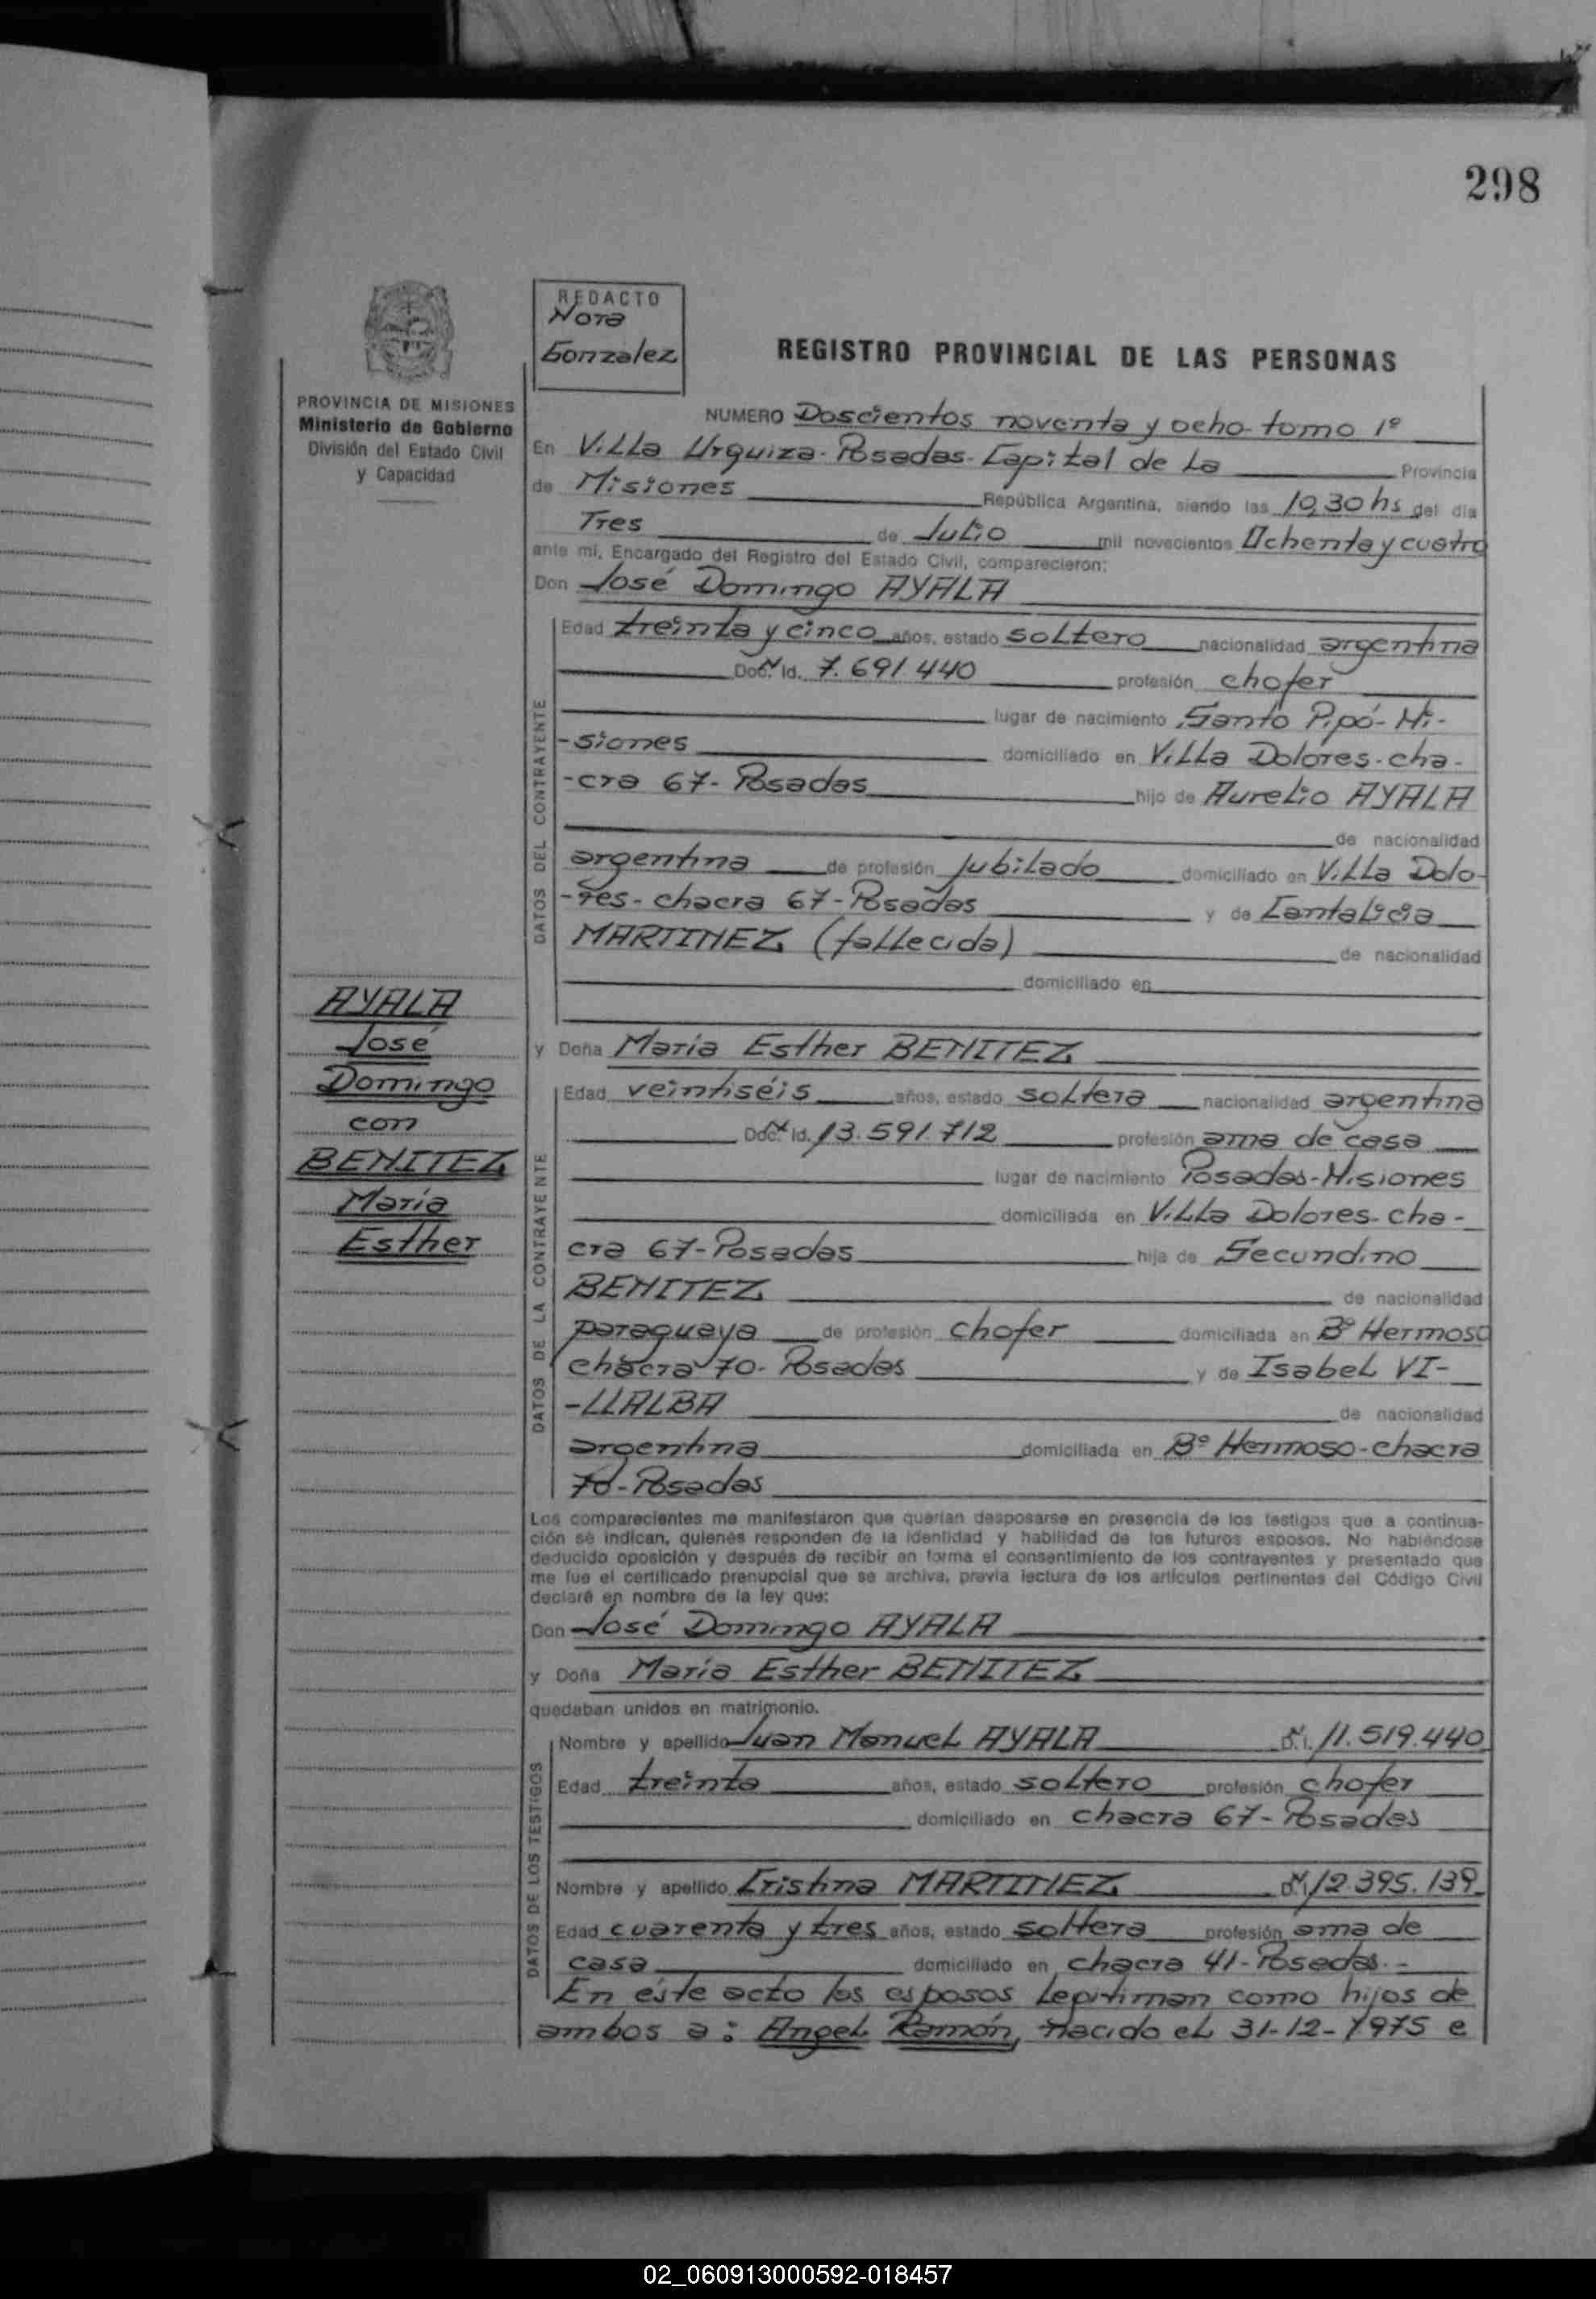 298
PROVINCIA DE MISIONES
Ministerio de Gobierno
División del Estado Civil
y Capacidad
REDACTO
Nora
Gonzalez
REGISTRO PROVINCIAL DE LAS PERSONAS
NUMERO Doscientos noventa y ocho - tomo 1º
En Villa Urquiza - Posadas - Capital de la Provincia
de Misiones República Argentina, siendo las 10,30 hs del día
Tres de Julio mil novecientos Ochenta y cuatro
ante mí, Encargado del Registro del Estado Civil, comparecieron:
Don José Domingo AYALA
DATOS DEL CONTRAYENTE
Edad treinta y cinco años, estado soltero nacionalidad argentina
Doc. Id. 7.691.440 profesión chofer
lugar de nacimiento Santo Pipó - Mi-
-siones domiciliado en Villa Dolores - cha-
-cra 67 - Posadas hijo de Aurelio AYALA
de nacionalidad
argentina de profesión jubilado domiciliado en Villa Dolo-
-res - chacra 67 - Posadas y de Cantalicia
MARTINEZ (fallecida) de nacionalidad
domiciliado en
AYALA
José
Domingo
con
BENITEZ
María
Esther
y Doña María Esther BENITEZ
DATOS DE LA CONTRAYENTE
Edad veintiséis años, estado soltera nacionalidad argentina
Doc. Id. 13.591.712 profesión ama de casa
lugar de nacimiento Posadas - Misiones
domiciliada en Villa Dolores - cha-
cra 67 - Posadas hija de Secundino
BENITEZ de nacionalidad
paraguaya de profesión chofer domiciliada en Bº Hermoso
chacra 70 - Posadas y de Isabel VI-
-LLALBA de nacionalidad
argentina domiciliada en Bº Hermoso - chacra
70 - Posadas
Los comparecientes me manifestaron que querían desposarse en presencia de los testigos que a continua-
ción se indican, quienes responden de la identidad y habilidad de los futuros esposos. No habiéndose
deducido oposición y después de recibir en forma el consentimiento de los contrayentes y presentado que
me fue el certificado prenupcial que se archiva, previa lectura de los artículos pertinentes del Código Civil
declaré en nombre de la ley que:
Don José Domingo AYALA
y Doña María Esther BENITEZ
quedaban unidos en matrimonio.
DATOS DE LOS TESTIGOS
Nombre y apellido Juan Manuel AYALA D.N.I. 11.519.440
Edad treinta años, estado soltero profesión chofer
domiciliado en chacra 67 - Posadas
Nombre y apellido Cristina MARTINEZ D.N.I. 12.395.139
Edad cuarenta y tres años, estado soltera profesión ama de
casa domiciliado en chacra 41 - Posadas. -
En éste acto los esposos legitiman como hijos de
ambos a: Angel Ramón, nacido el 31-12-1975 e
02_060913000592-018457